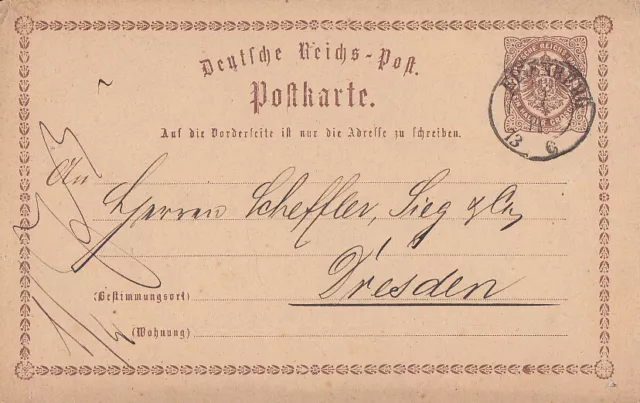 Deutsche Reichs-Post.
Postkarte.
Auf die Vorderseite ist nur die Adresse zu schreiben.
An
Herren Scheffler, Sieg & Co,
Dresden
(Bestimmungsort)
(Wohnung)